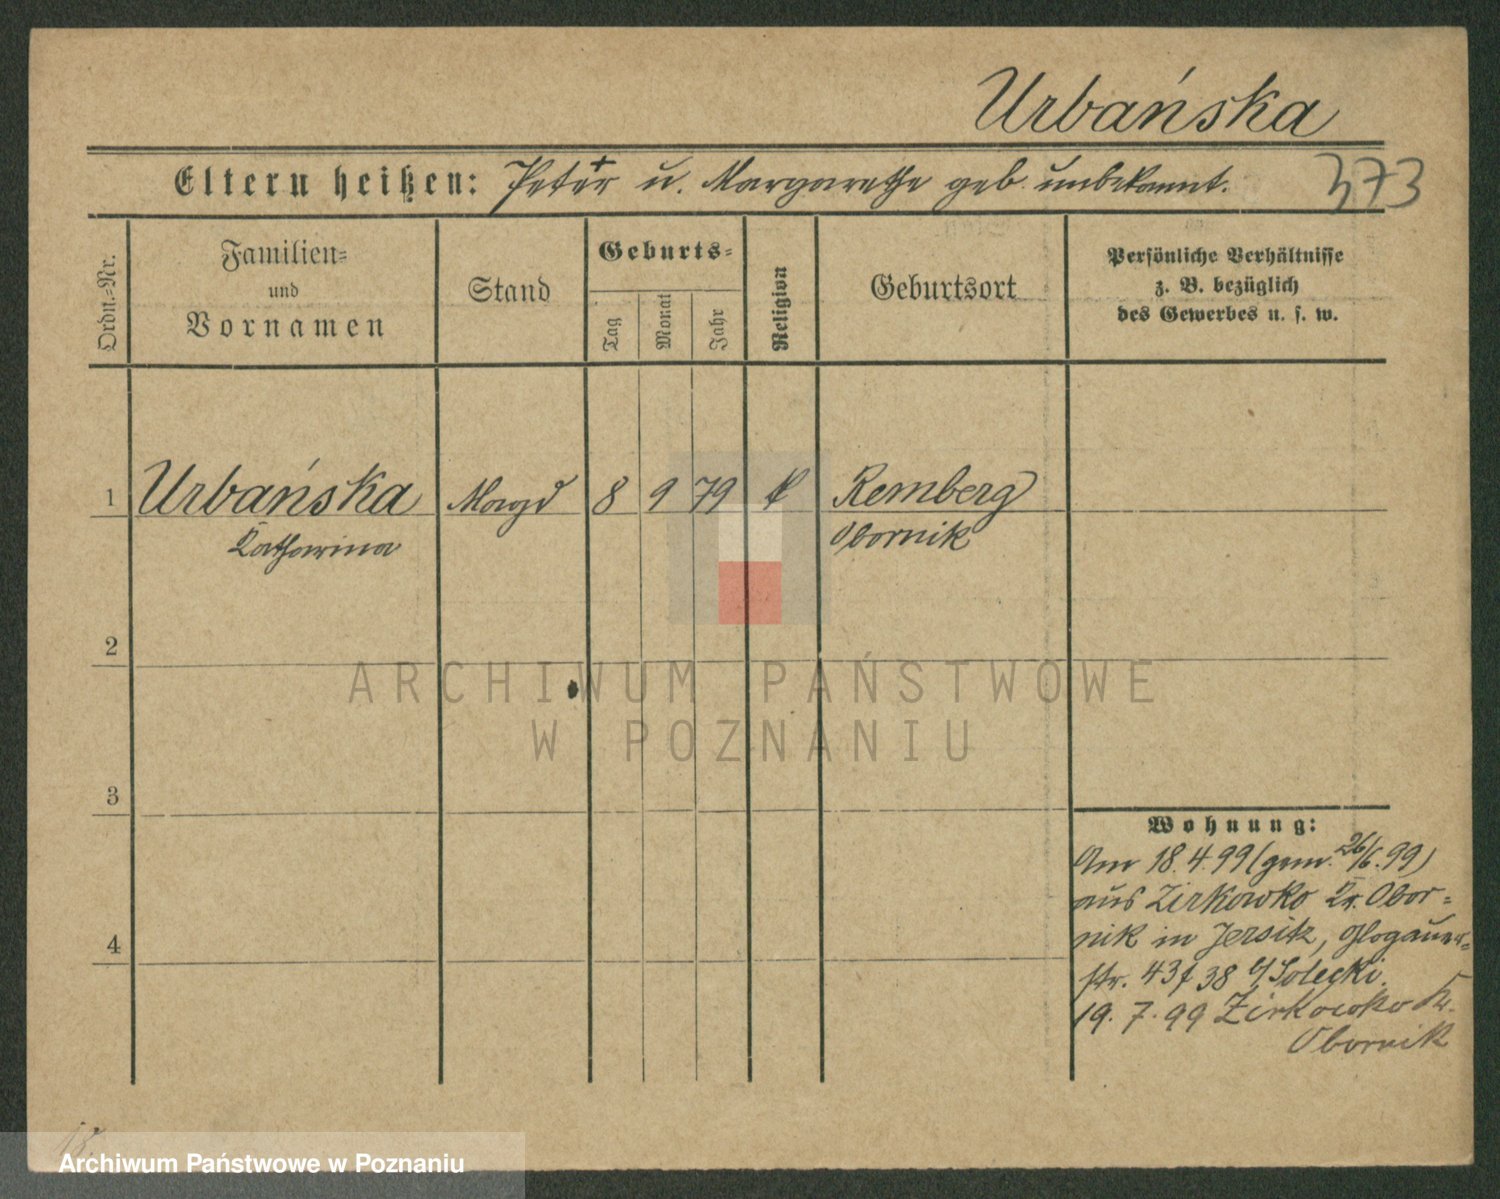 Urbańska
Eltern heißen: Peter + u. Margarethe geb. unbekannt. 373
Ordn.-Nr.
Familien-
und
Vornamen
Stand
Geburts-
Tag
Monat
Jahr
Religion
Geburtsort
Persönliche Verhältnisse
z. B. bezüglich
des Gewerbes u. s. w.
1 Urbańska Magd 8 9 79 k Remberg
Katharina Obornik
2
3
4
Wohnung:
Am 18.4.99 (gem. 26/6.99)
aus Zirkowko Kr. Obor-
nik in Jersitz, Glogauer-
str. 43/38 b/ Solecki.
19.7.99 Zirkowko Kr.
Obornik
ARCHIWUM PAŃSTWOWE
W POZNANIU
Archiwum Państwowe w Poznaniu